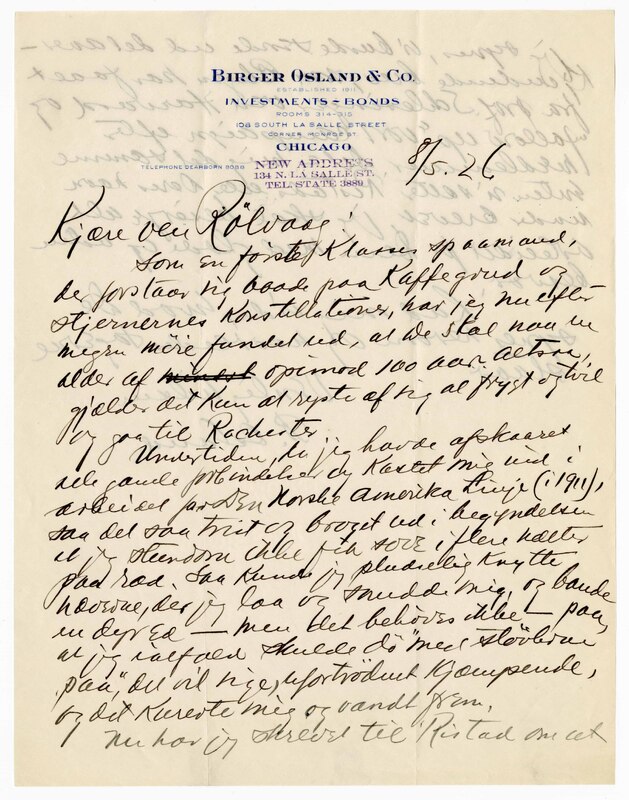 BIRGER OSLAND & CO.
ESTABLISHED 1911
INVESTMENTS - BONDS
ROOMS 314-315
108 SOUTH LA SALLE STREET
CORNER MONROE ST.
CHICAGO
TELEPHONE DEARBORN 8088
NEW ADDRESS
134 N. LA SALLE ST.
TEL. STATE 3889
8/5. 26
Kjære ven Rölvaag!
Som en første Klasses spaamand,
der forstaar sig baade paa Kaffegrud og
stjernernes Konstellationer, har jeg nu efter
megen möie fundet ud, at De skal naa en
alder af mindst opimod 100 aar. Altsaa,
gjælder det kun at ryste af sig al frygt og tvil
og gaa til Rochester.
Undertiden, da jeg havde afskaaret
alle gamle forbindelser og kastet mig ind i
arbeidet for Den Norske Amerika Linje (i 1911),
saa det saa trist og broget ud i begyndelsen
at jeg stundom ikke fik sove i flere nætter
paa rad. Saa kunde jeg pludselig knytte
næverne, der jeg laa og snudde mig, og bande
en dyr Ed — men det behöves ikke — paa
at jeg ialfald skulde dö "med stövlerne
paa", det vil sige, ufortrödent kjæmpende,
og det kurerte mig og vandt frem.
Nu har jeg skrevet til Ristad om at